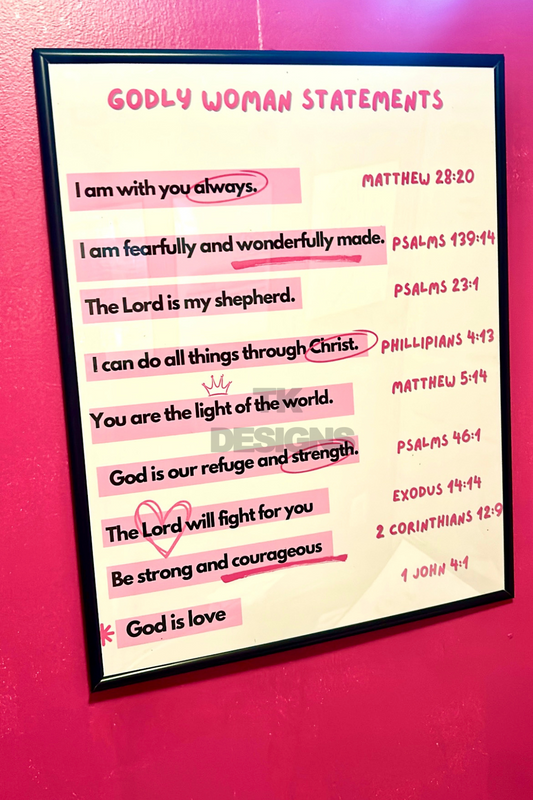 GODLY WOMAN STATEMENTS
I am with you always. MATTHEW 28:20
I am fearfully and wonderfully made. PSALMS 139:14
The Lord is my shepherd. PSALMS 23:1
I can do all things through Christ. PHILLIPIANS 4:13
You are the light of the world. MATTHEW 5:14
TK
DESIGNS
God is our refuge and strength. PSALMS 46:1
The Lord will fight for you EXODUS 14:14
Be strong and courageous 2 CORINTHIANS 12:9
God is love 1 JOHN 4:1